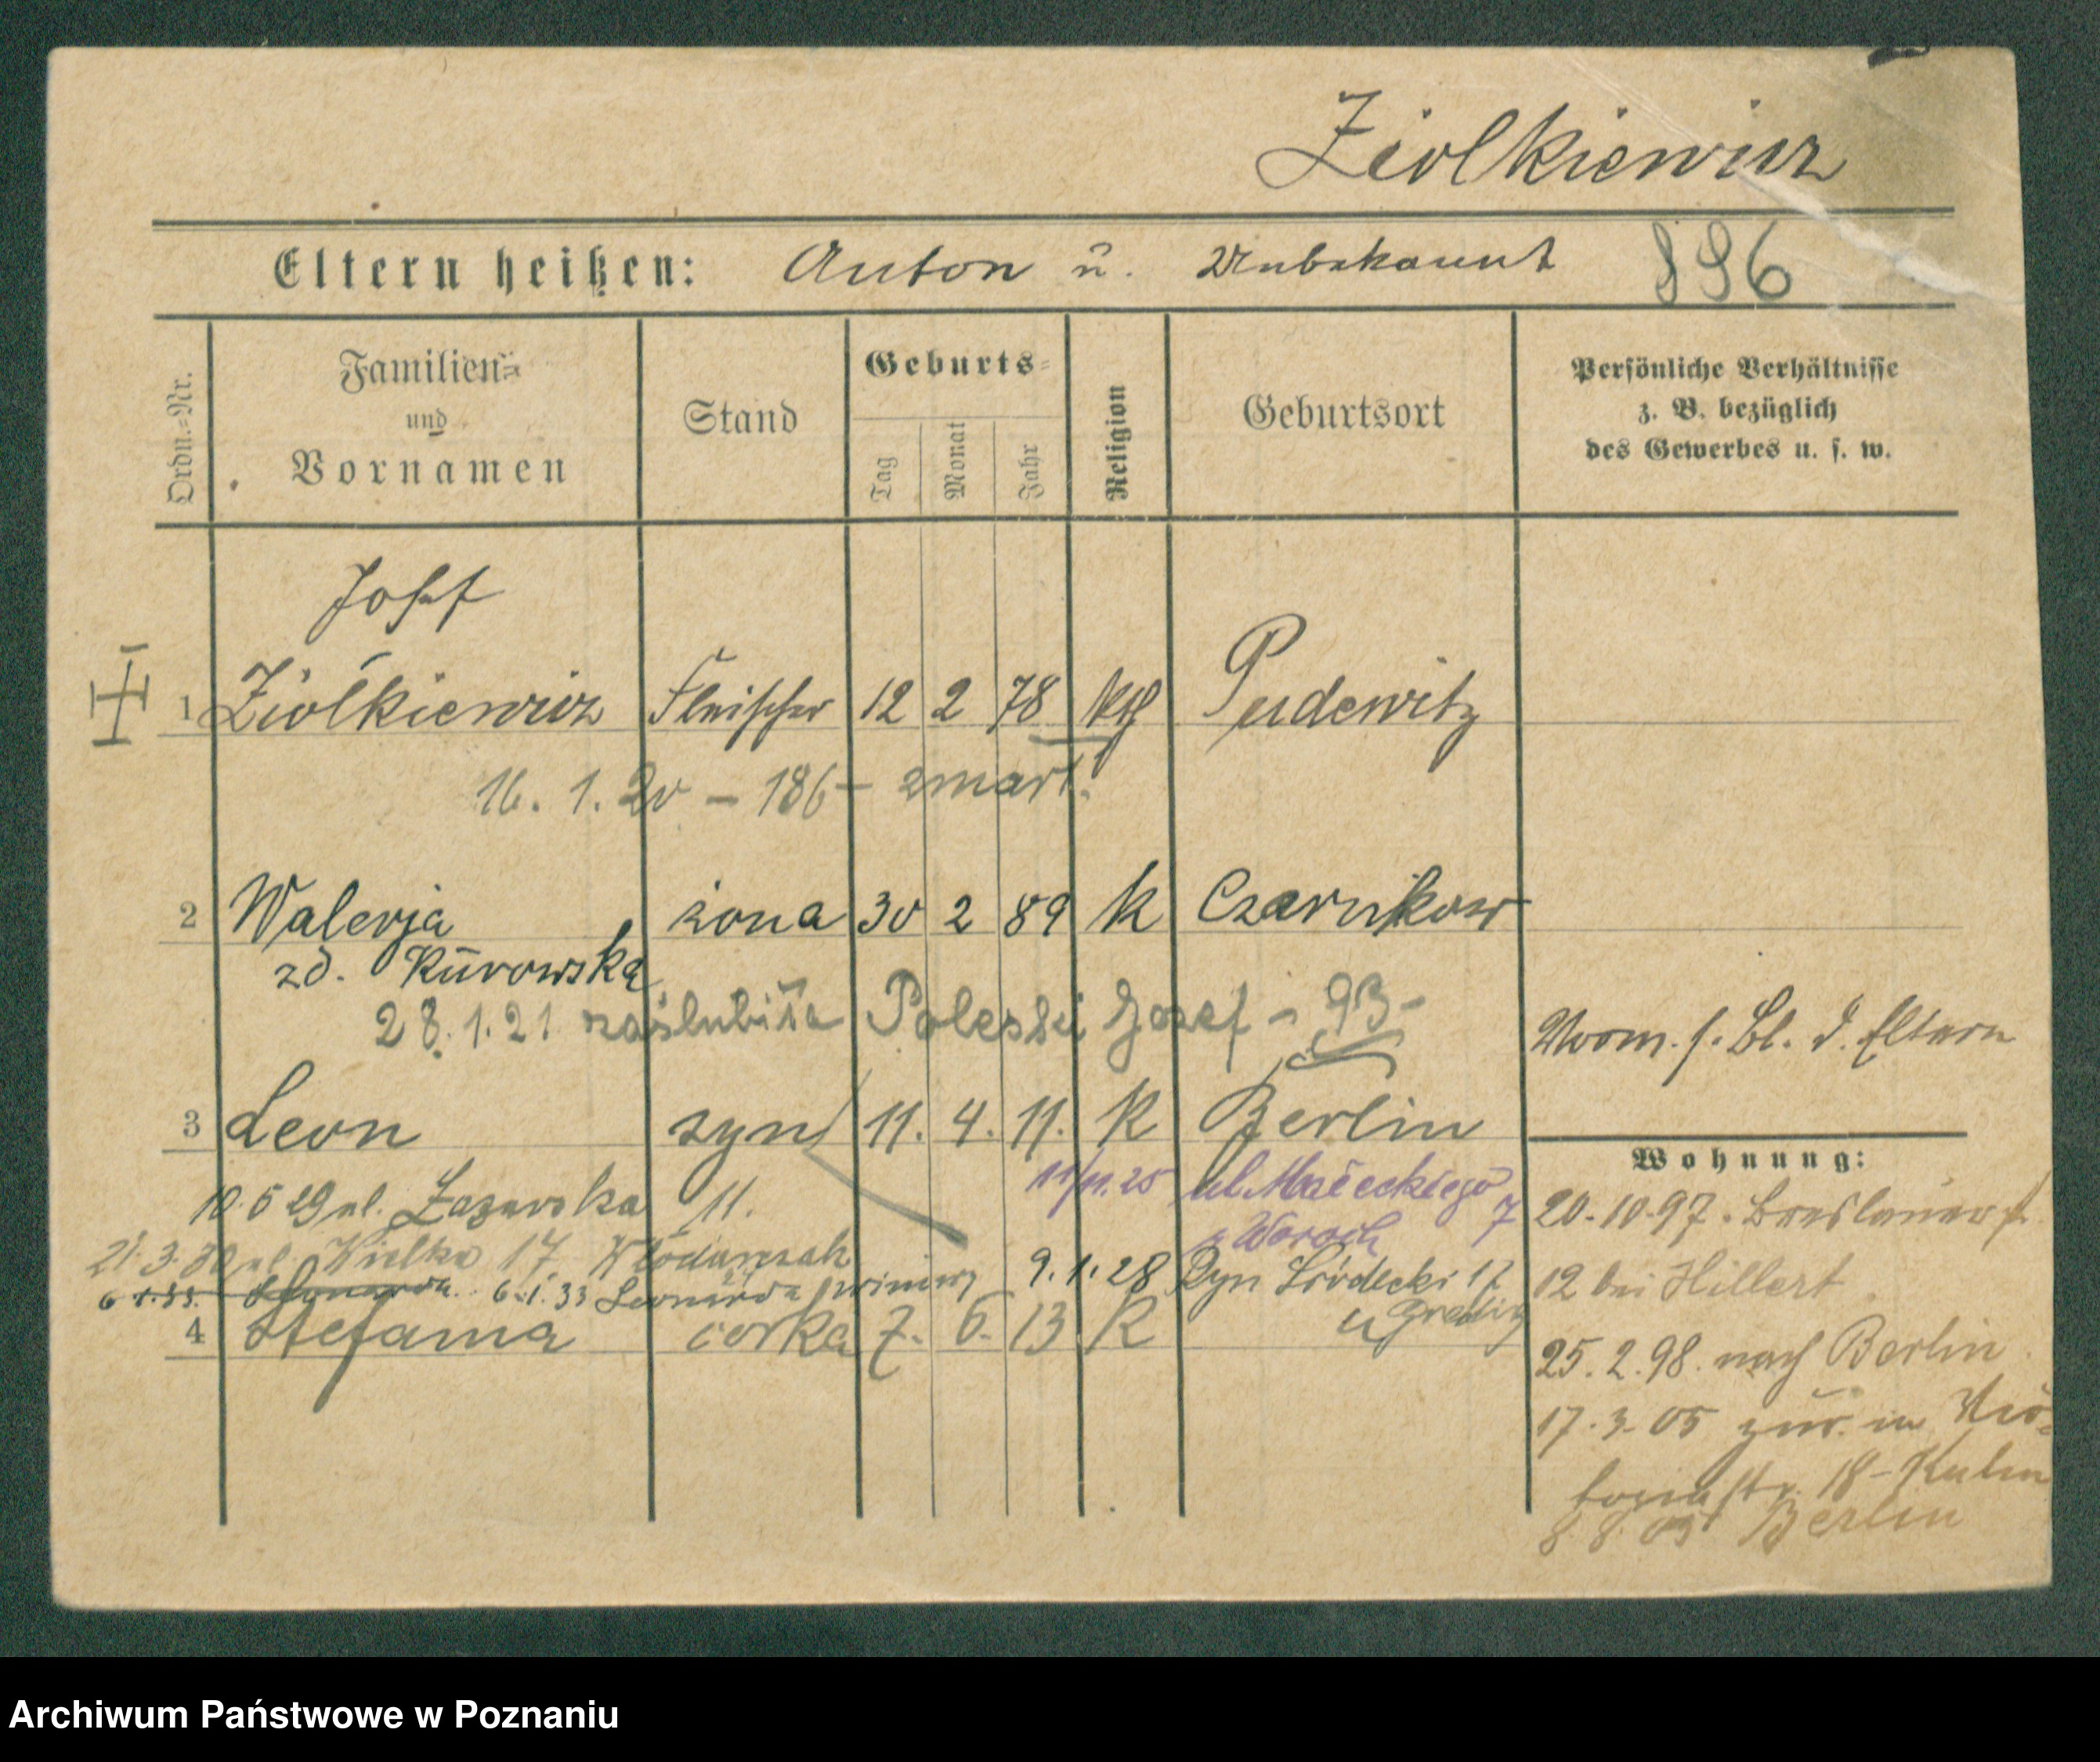 Ziolkiewicz
Eltern heißen: Anton u. Unbekannt 896
Ordn.-Nr.
Familien- und Vornamen
Stand
Geburts-
Tag Monat Jahr
Religion
Geburtsort
Persönliche Verhältnisse
z. B. bezüglich
des Gewerbes u. s. w.
Josef
1 Ziołkiewicz Fleischer 12 2 78 kth Pudewitz
16. 1. 20 – 186 – zmarł.
2 Walerja żona 30 2 89 k Czarnikow
zd. Kurowska
28.1.21 zaślubiła Poleski Jozef – 93 –
Vorm. s. Bl. d. Eltern
3 Leon syn 11. 4. 11. k Berlin
Wohnung:
11/11.25 ul. Małeckiego 7
10.5 29 ul. Łazarska 11.
20.10.97. Breslauerst.
21.3.30 ul. Wielka 17
9.1.28 Ryn Śródecki 17
6.1.33.
6.1.33
12 bei Hillert
4 Stefania córka 7. 6. 13 k
25.2.98. nach Berlin
17.3.05 zur. in Vic-
toriastr. 18 –
8 8 05 Berlin
Archiwum Państwowe w Poznaniu